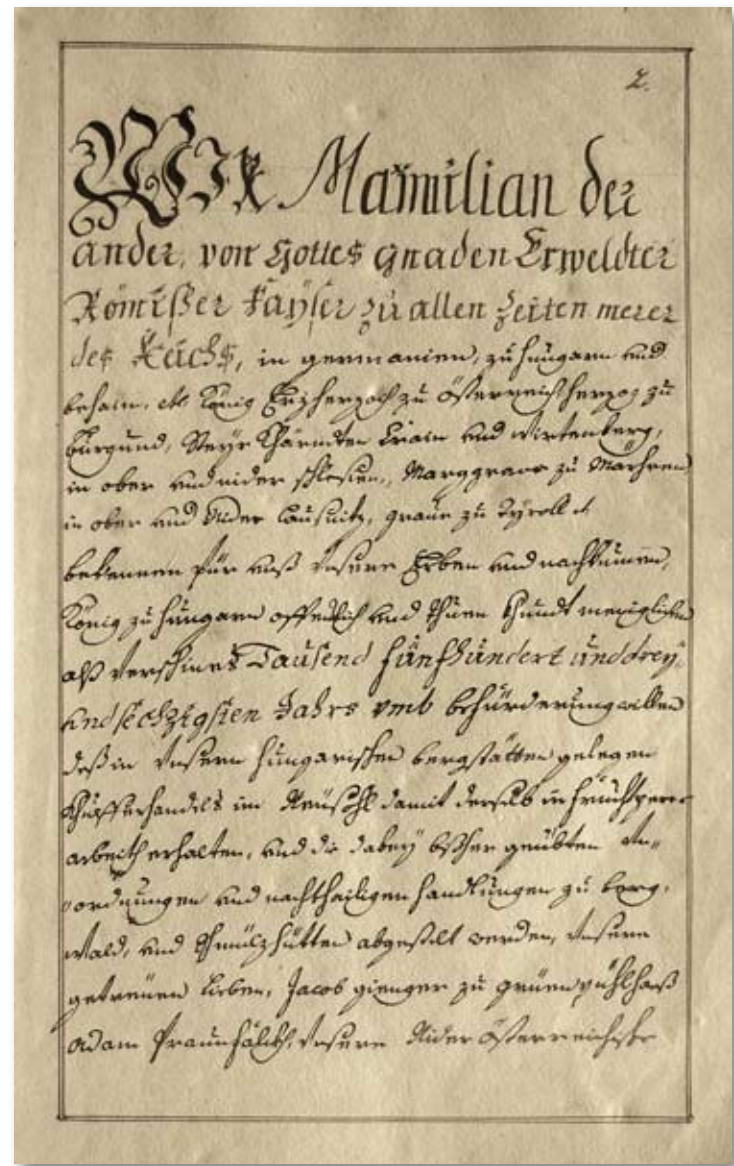 2.
WIR Maximilian der
ander, von Gottes gnaden Erweldter
Römißer Kayser zu allen Zeiten merer
des Reichs, in germanien, zu hungarn und
behaim, etc König Erzherzoch zu Österreich herzog zu
Burgund, Steyr Khärndten Crain und Wirtenberg,
in ober und nider schlesien, Marggraue zu Märhren
in ober und Nider Lausnitz, graue zu Tyroll etc
bekennen für unß Unsere Erben und nachkumen,
König zu hungarn offentlich und Thuen khundt meniglichen
alß verschines Tausend fünfhundert unddrey
undsechzigsten Jahrs vmb befürderung willen
deß in Unsern hungarischen bergstätten gelegen
Khupfferhandels im Neusohl damit derselb in
arbeith erhalten, und die dabey bißher geübten Un„
ordnungen und nachtheiligen handlungen zu berg,
Wald, und Schmölzhütten abgestelt werden, Unsere
getreuen lieben, Jacob gienger zu grüenpühlhaß
Adam Unsere Nider Österreichische